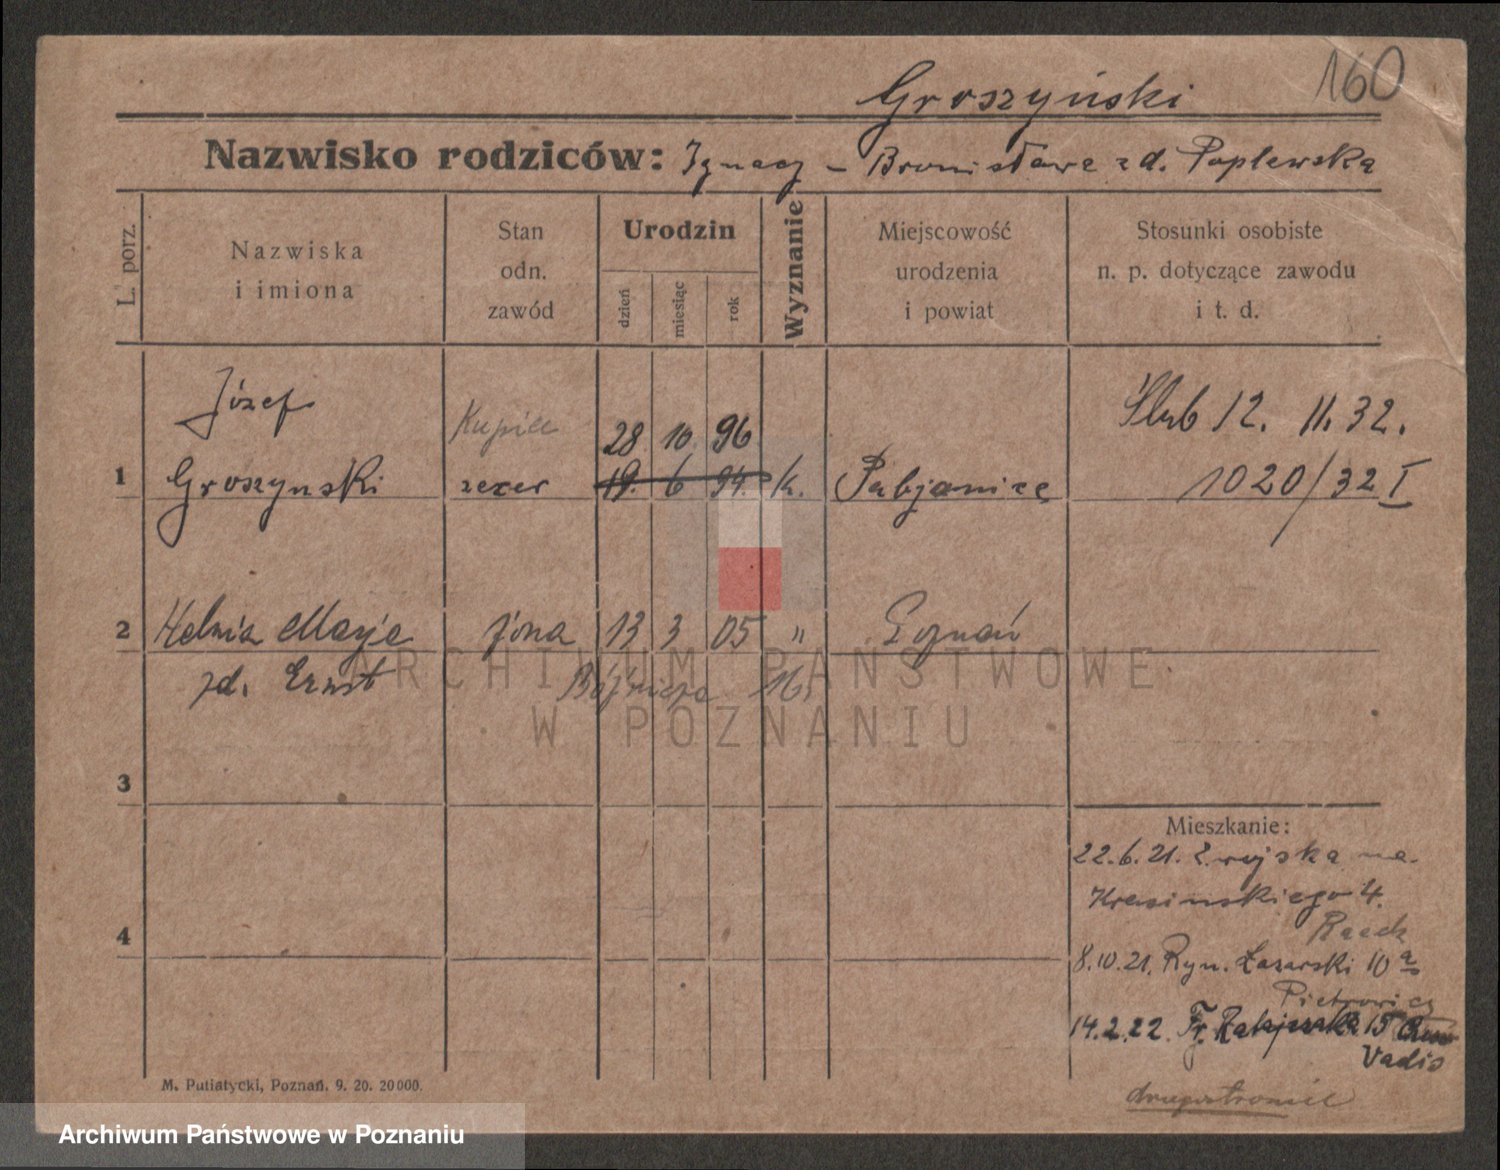 160
Groszyński
Nazwisko rodziców: Ignacy – Bronisława z d. Poplewska
L. porz.
Nazwiska i imiona
Stan odn. zawód
Urodzin
dzień
miesiąc
rok
Wyznanie
Miejscowość urodzenia i powiat
Stosunki osobiste n. p. dotyczące zawodu i t. d.
Józef
Kupiec
28 10 96
Ślub 12. 11. 32.
1 Groszynski zecer 19. 6 94. k. Pabjanice 1020/32 I
2 Helena Marja żona 13 3 05 " Poznań
zd. Ernst
16.
3
4
Mieszkanie:
22.6.21. z wojska na.
Krasińskiego 4.
8.10.21. Ryn. Łazarski 10 a
Pietrowicz
14.2.22. Fr. Ratajczaka 15
Vadis
M. Putiatycki, Poznań. 9. 20. 20000.
ARCHIWUM PAŃSTWOWE
W POZNANIU
Archiwum Państwowe w Poznaniu